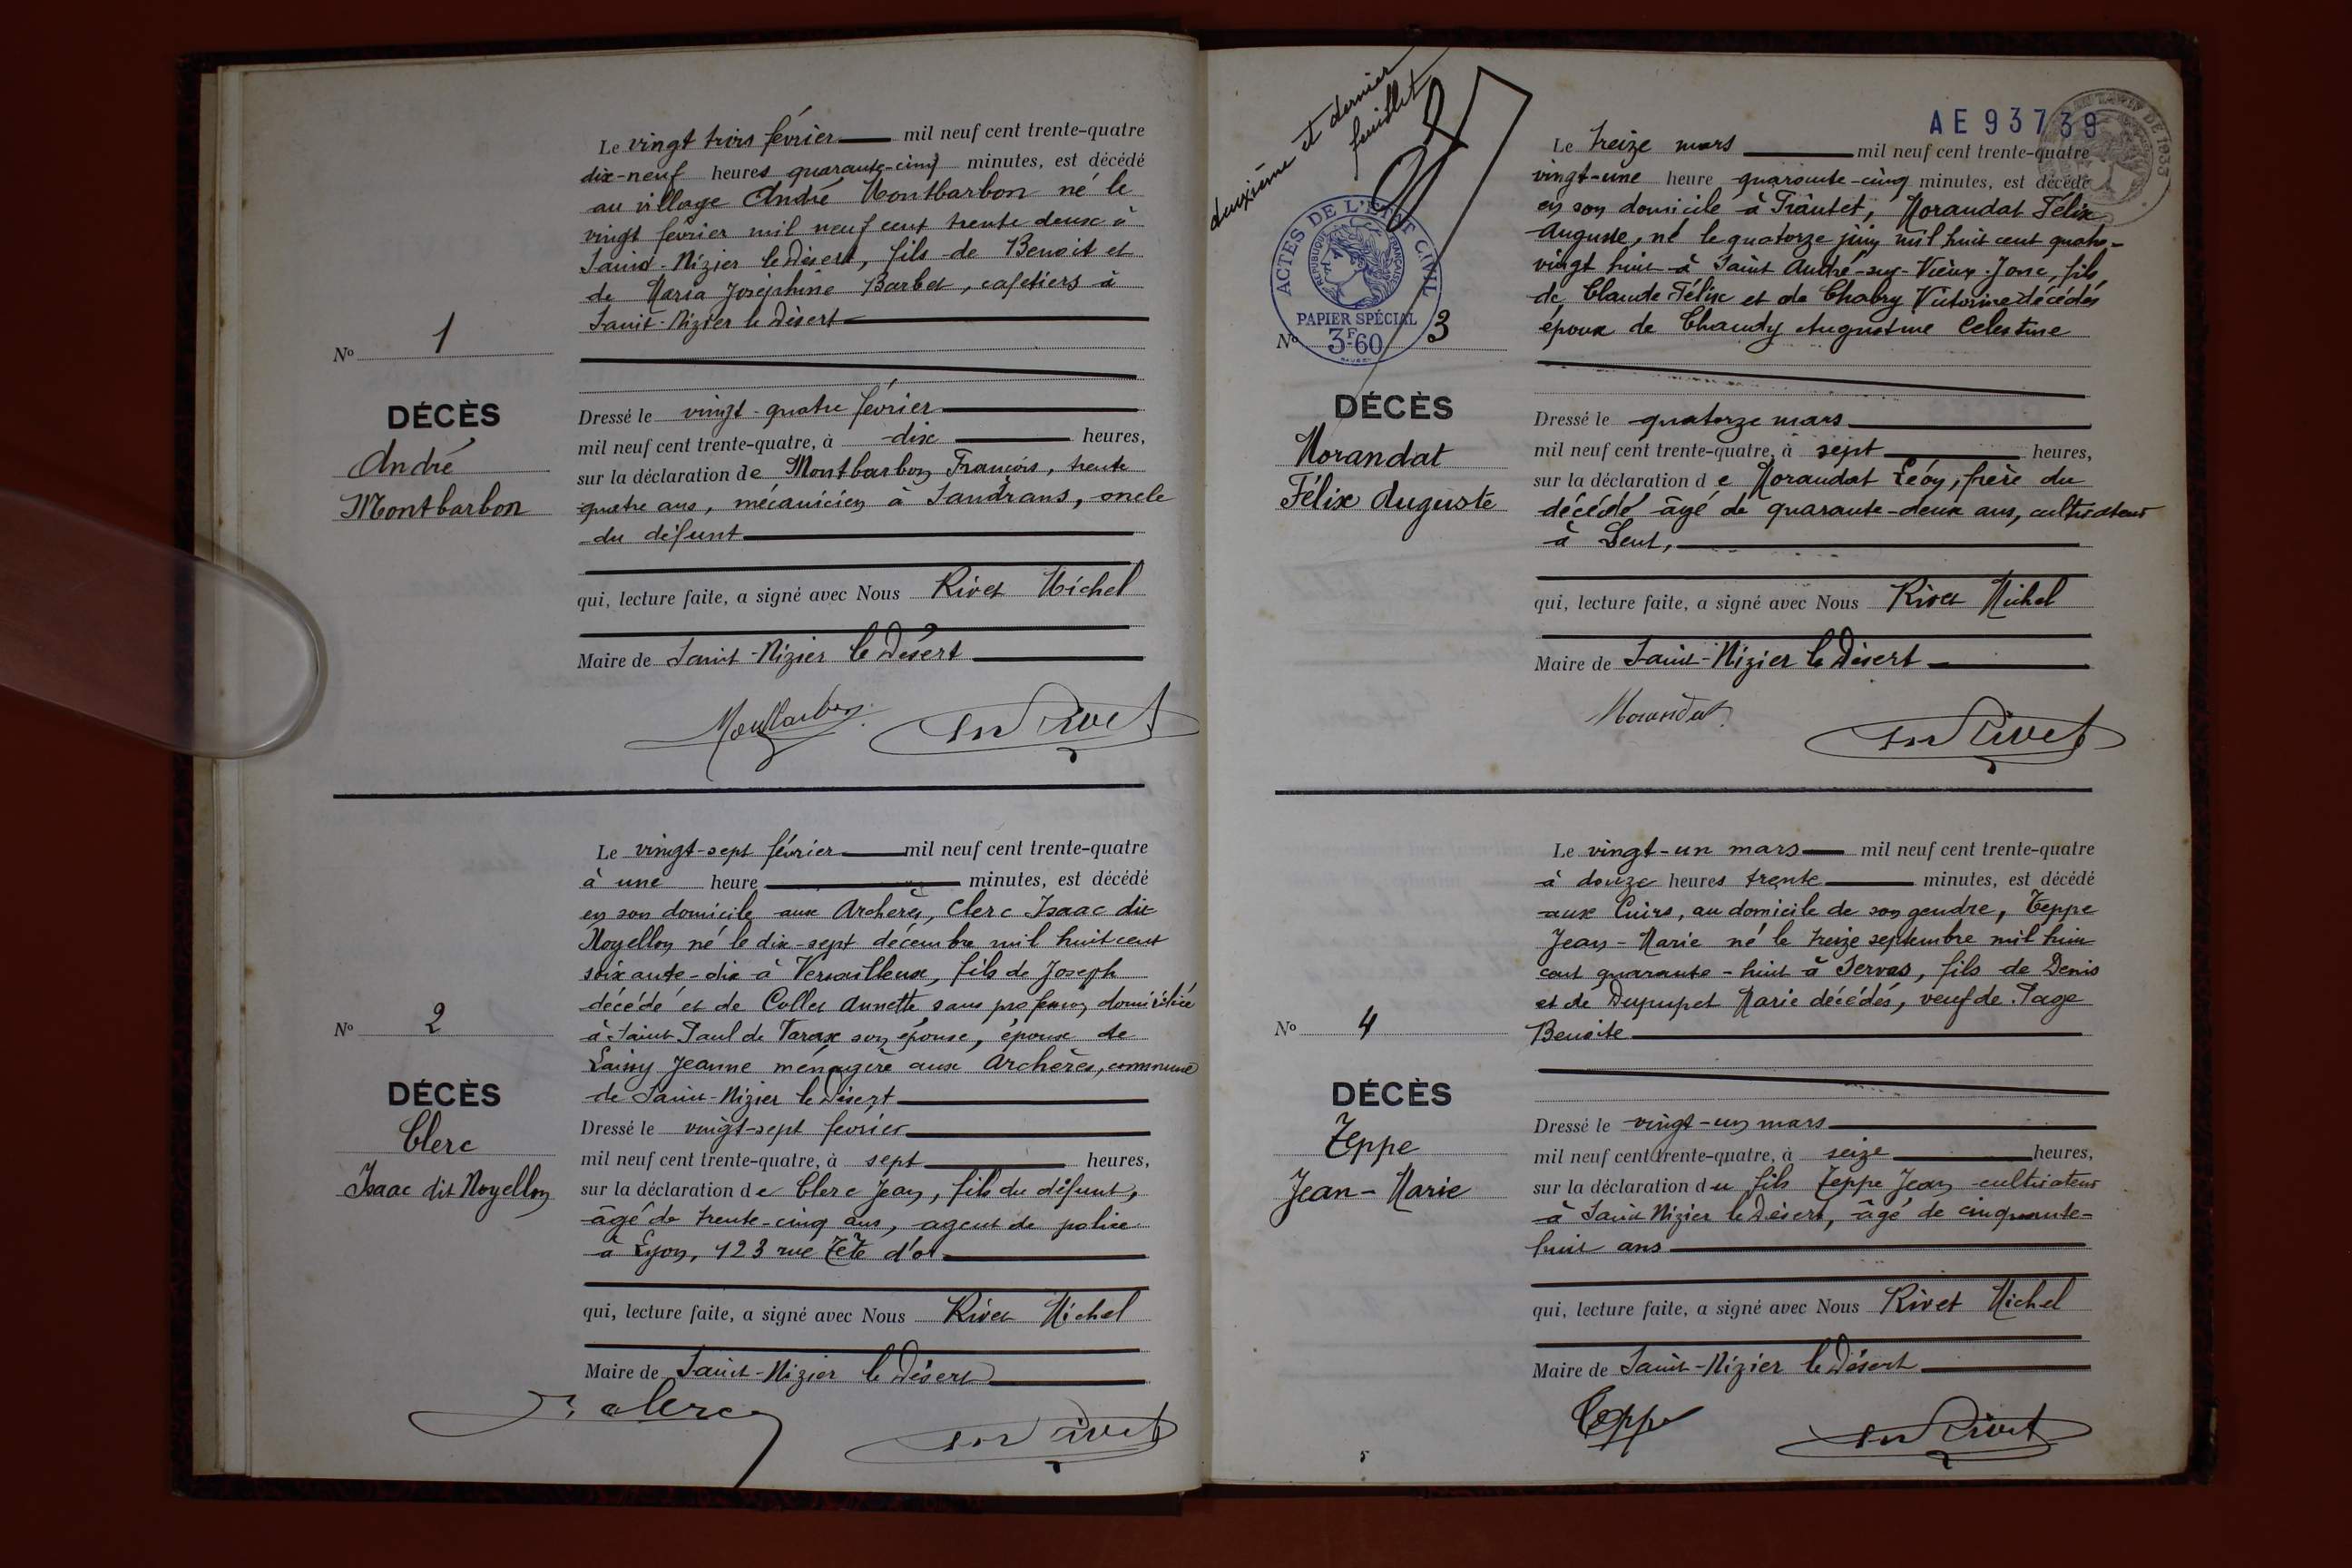 Le vingt trois février mil neuf cent trente-quatre
dix-neuf heures quarante-cinq minutes, est décédé
au village André Montbarbon né le
vingt février mil neuf cent trente deux à
Saint-Nizier le Désert, fils de Benoit et
de Maria Joséphine Barbet, cafetiers à
Saint-Nizier le Désert
No 1
DÉCÈS
André
Montbarbon
Dressé le vingt-quatre février
mil neuf cent trente-quatre, à dix heures,
sur la déclaration de Montbarbon François, trente
quatre ans, mécanicien à Sandrans, oncle
du défunt
qui, lecture faite, a signé avec Nous Rivet Michel
Maire de Saint-Nizier le Désert
Montbarbon
Rivet
Le vingt-sept février mil neuf cent trente-quatre
à une heure minutes, est décédé
en son domicile aux Archères, Clerc Isaac dit
Noyellon né le dix-sept décembre mil huit cent
soixante-dix à Versailleux, fils de Joseph
décédé et de Collet Annette sans profession domiciliée
à Saint Paul de Varax son épouse, époux de
Jeanne ménagère aux Archères, commune
de Saint-Nizier le Désert
No 2
DÉCÈS
Clerc
Isaac dit Noyellon
Dressé le vingt-sept février
mil neuf cent trente-quatre, à sept heures,
sur la déclaration de Clerc Jean, fils du défunt,
âgé de trente-cinq ans, agent de police
à Lyon, 123 rue Tête d'or
qui, lecture faite, a signé avec Nous Rivet Michel
Maire de Saint-Nizier le Désert
J. Clerc
Rivet
deuxième et dernier
feuillet
AE 93739
ACTES DE L'ÉTAT CIVIL
RÉPUBLIQUE FRANÇAISE
PAPIER SPÉCIAL
3F60
Le treize mars mil neuf cent trente-quatre
vingt-une heure quarante-cinq minutes, est décédé
en son domicile à Trantet, Morandat Félix
Auguste, né le quatorze juin mil huit cent quatre-
vingt huit à Saint André-sur-Vieux-Jonc, fils
de Claude Félix et de Chabry Victorine décédés
époux de Chaudy Augustine Celestine
No 3
DÉCÈS
Morandat
Félix Auguste
Dressé le quatorze mars
mil neuf cent trente-quatre, à sept heures,
sur la déclaration de Morandat Léon, frère du
décédé âgé de quarante-deux ans, cultivateur
à Lent,
qui, lecture faite, a signé avec Nous Rivet Michel
Maire de Saint-Nizier le Désert
Morandat
Rivet
Le vingt-un mars mil neuf cent trente-quatre
à douze heures trente minutes, est décédé
aux Cuirs, au domicile de son gendre, Teppe
Jean-Marie né le treize septembre mil huit
cent quarante-huit à Servas, fils de Denis
et de Dupupet Marie décédés, veuf de Page
Benoite
No 4
DÉCÈS
Teppe
Jean-Marie
Dressé le vingt-un mars
mil neuf cent trente-quatre, à seize heures,
sur la déclaration du fils Teppe Jean cultivateur
à Saint Nizier le Désert, âgé de cinquante-
huit ans
qui, lecture faite, a signé avec Nous Rivet Michel
Maire de Saint-Nizier le Désert
Teppe
Rivet